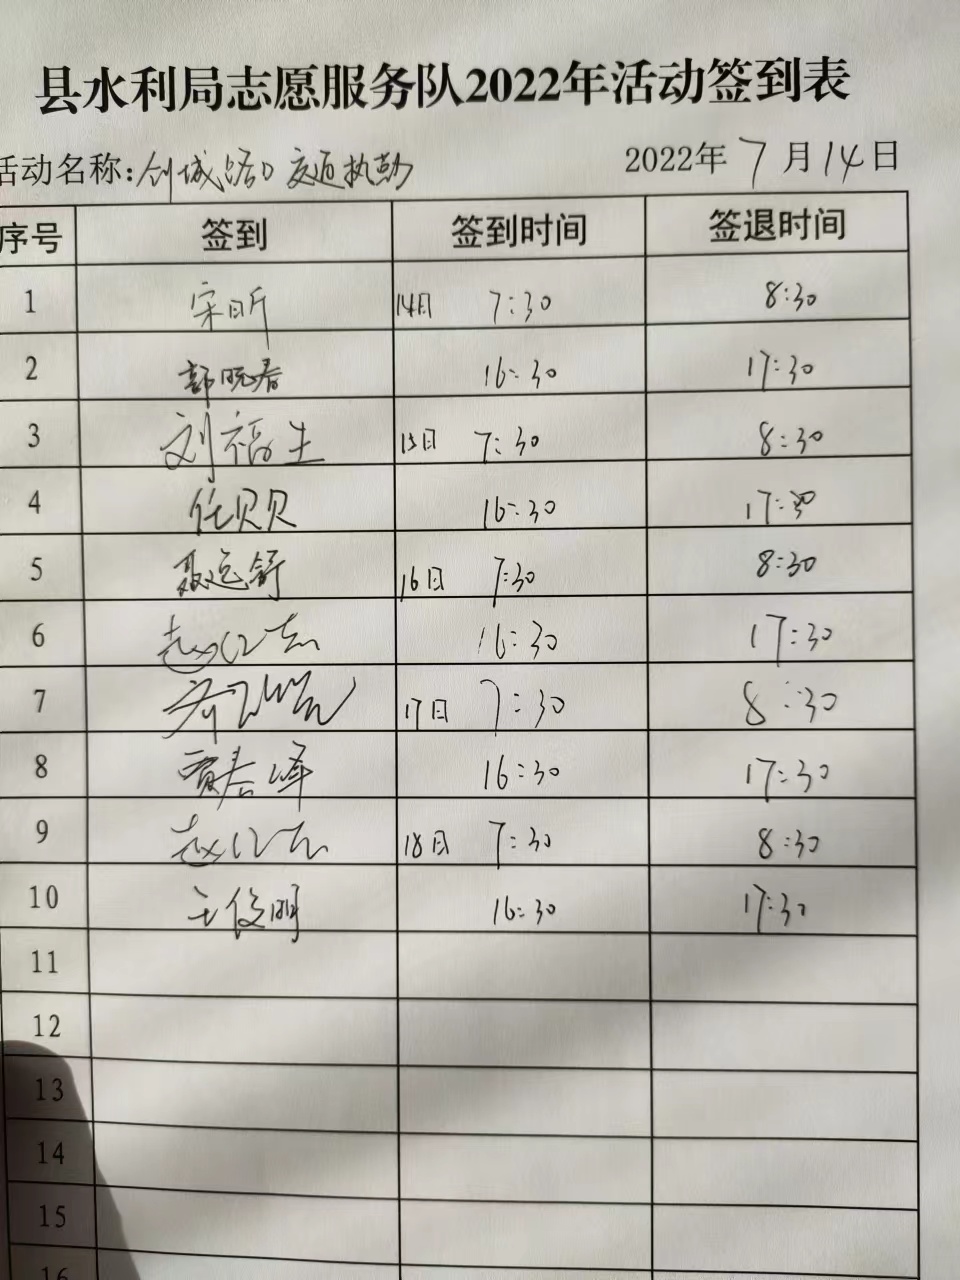 县水利局志愿服务队2022年活动签到表
活动名称:创城路口交通执勤 2022年7月14日
序号 签到 签到时间 签退时间
1 宋昕 14日 7:30 8:30
2 郭晓春 16:30 17:30
3 刘福生 15日 7:30 8:30
4 任贝贝 16:30 17:30
5 聂运舒 16日 7:30 8:30
6 16:30 17:30
7 17日 7:30 8:30
8 贾春峰 16:30 17:30
9 18日 7:30 8:30
10 王俊明 16:30 17:30
11
12
13
14
15
16